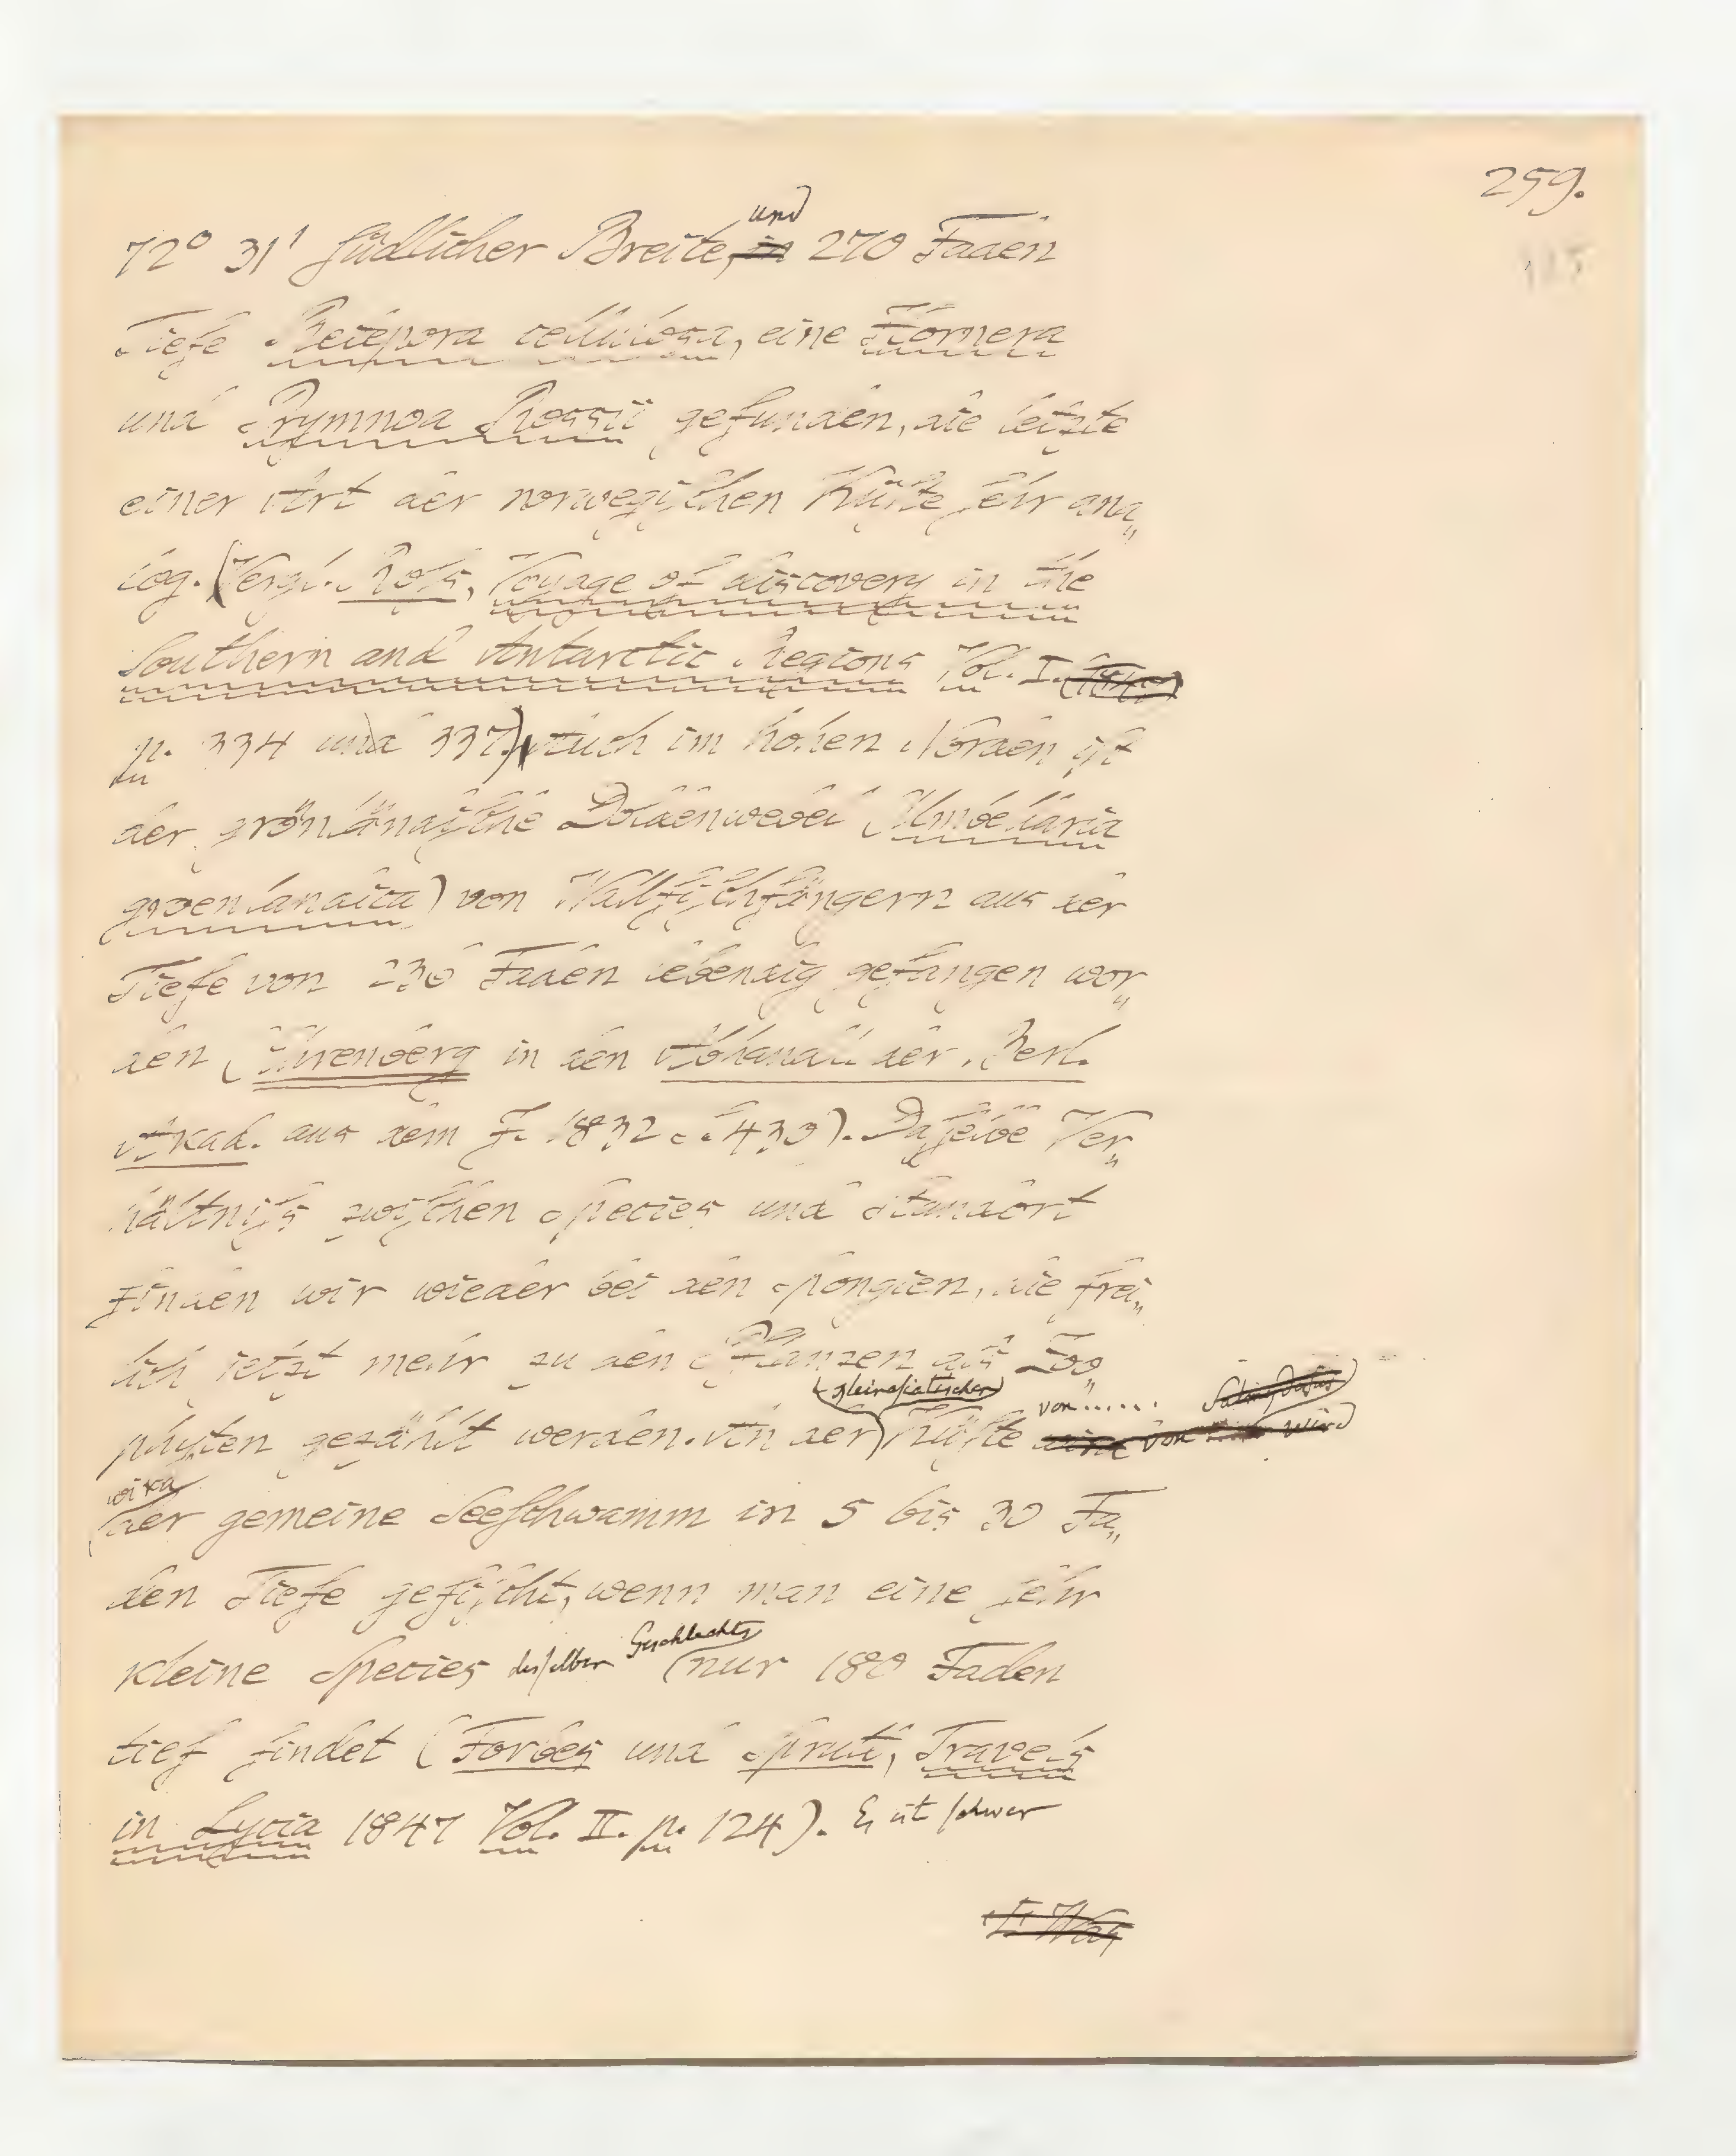 259.
72° 31' südlicher Breite, und in 270 Faden
Tiefe Retepora cellulosa, eine Hornera
und Prymnoa Rossii gefunden, die letzte
einer Art der norwegischen Küste sehr ana„
log. (Vergl. Roß, Voyage of discovery in the
Southern and Antarctic Regions Vol. I.
p. 334 und 337.) Auch im hohen Norden ist
der grönländische Doldenwedel (Umbellaria
groenlandica) von Wallfischfängern aus der
Tiefe von 236 Faden lebendig gefangen wor„
den (Ehrenberg in den Abhandl. der Berl.
Akad. aus dem J. 1832 S. 430). Dasselbe Ver„
hältniß zwischen Species und Standort
finden wir wieder bei den Spongien, die frei„
lich jetzt mehr zu den Pflanzen als Zoo„
phyten gezählt werden. An der kleinasiatischen Küste von ...... wird von wird
wird der gemeine Seeschwamm in 5 bis 30 Fa„
den Tiefe gefischt, wenn man eine sehr
kleine Species desselben Geschlechts nur 180 Faden
tief findet (Forbes und Spratt, Travels
in Lycia 1847 Vol. II. p. 124). Es ist schwer
Es War